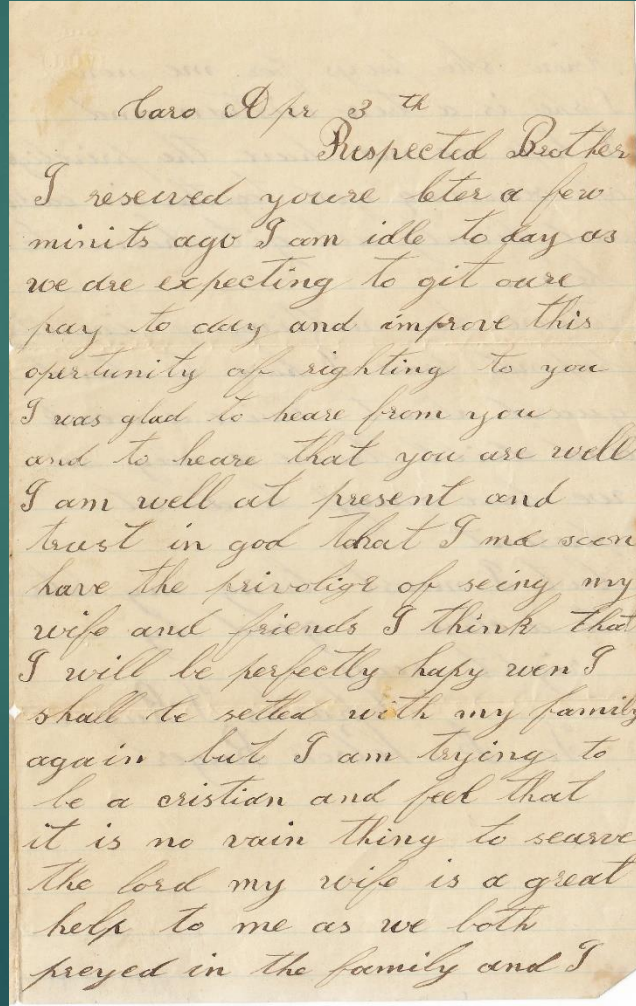 Caro Apr 3th
Respected Brother
I reseived youre leter a few
minits ago I am idle to day as
we are expecting to git oure
pay to day and improve this
opertunity of righting to you
I was glad to heare from you
and to heare that you are well
I am well at present and
trust in god that I ma soon
have the privolige of seing my
wife and friends I think that
I will be perfectly hapy wen I
shall be setled with my family
again but I am trying to
be a cristian and feel that
it is no vain thing to searve
the lord my wife is a great
help to me as we both
preyed in the family and I